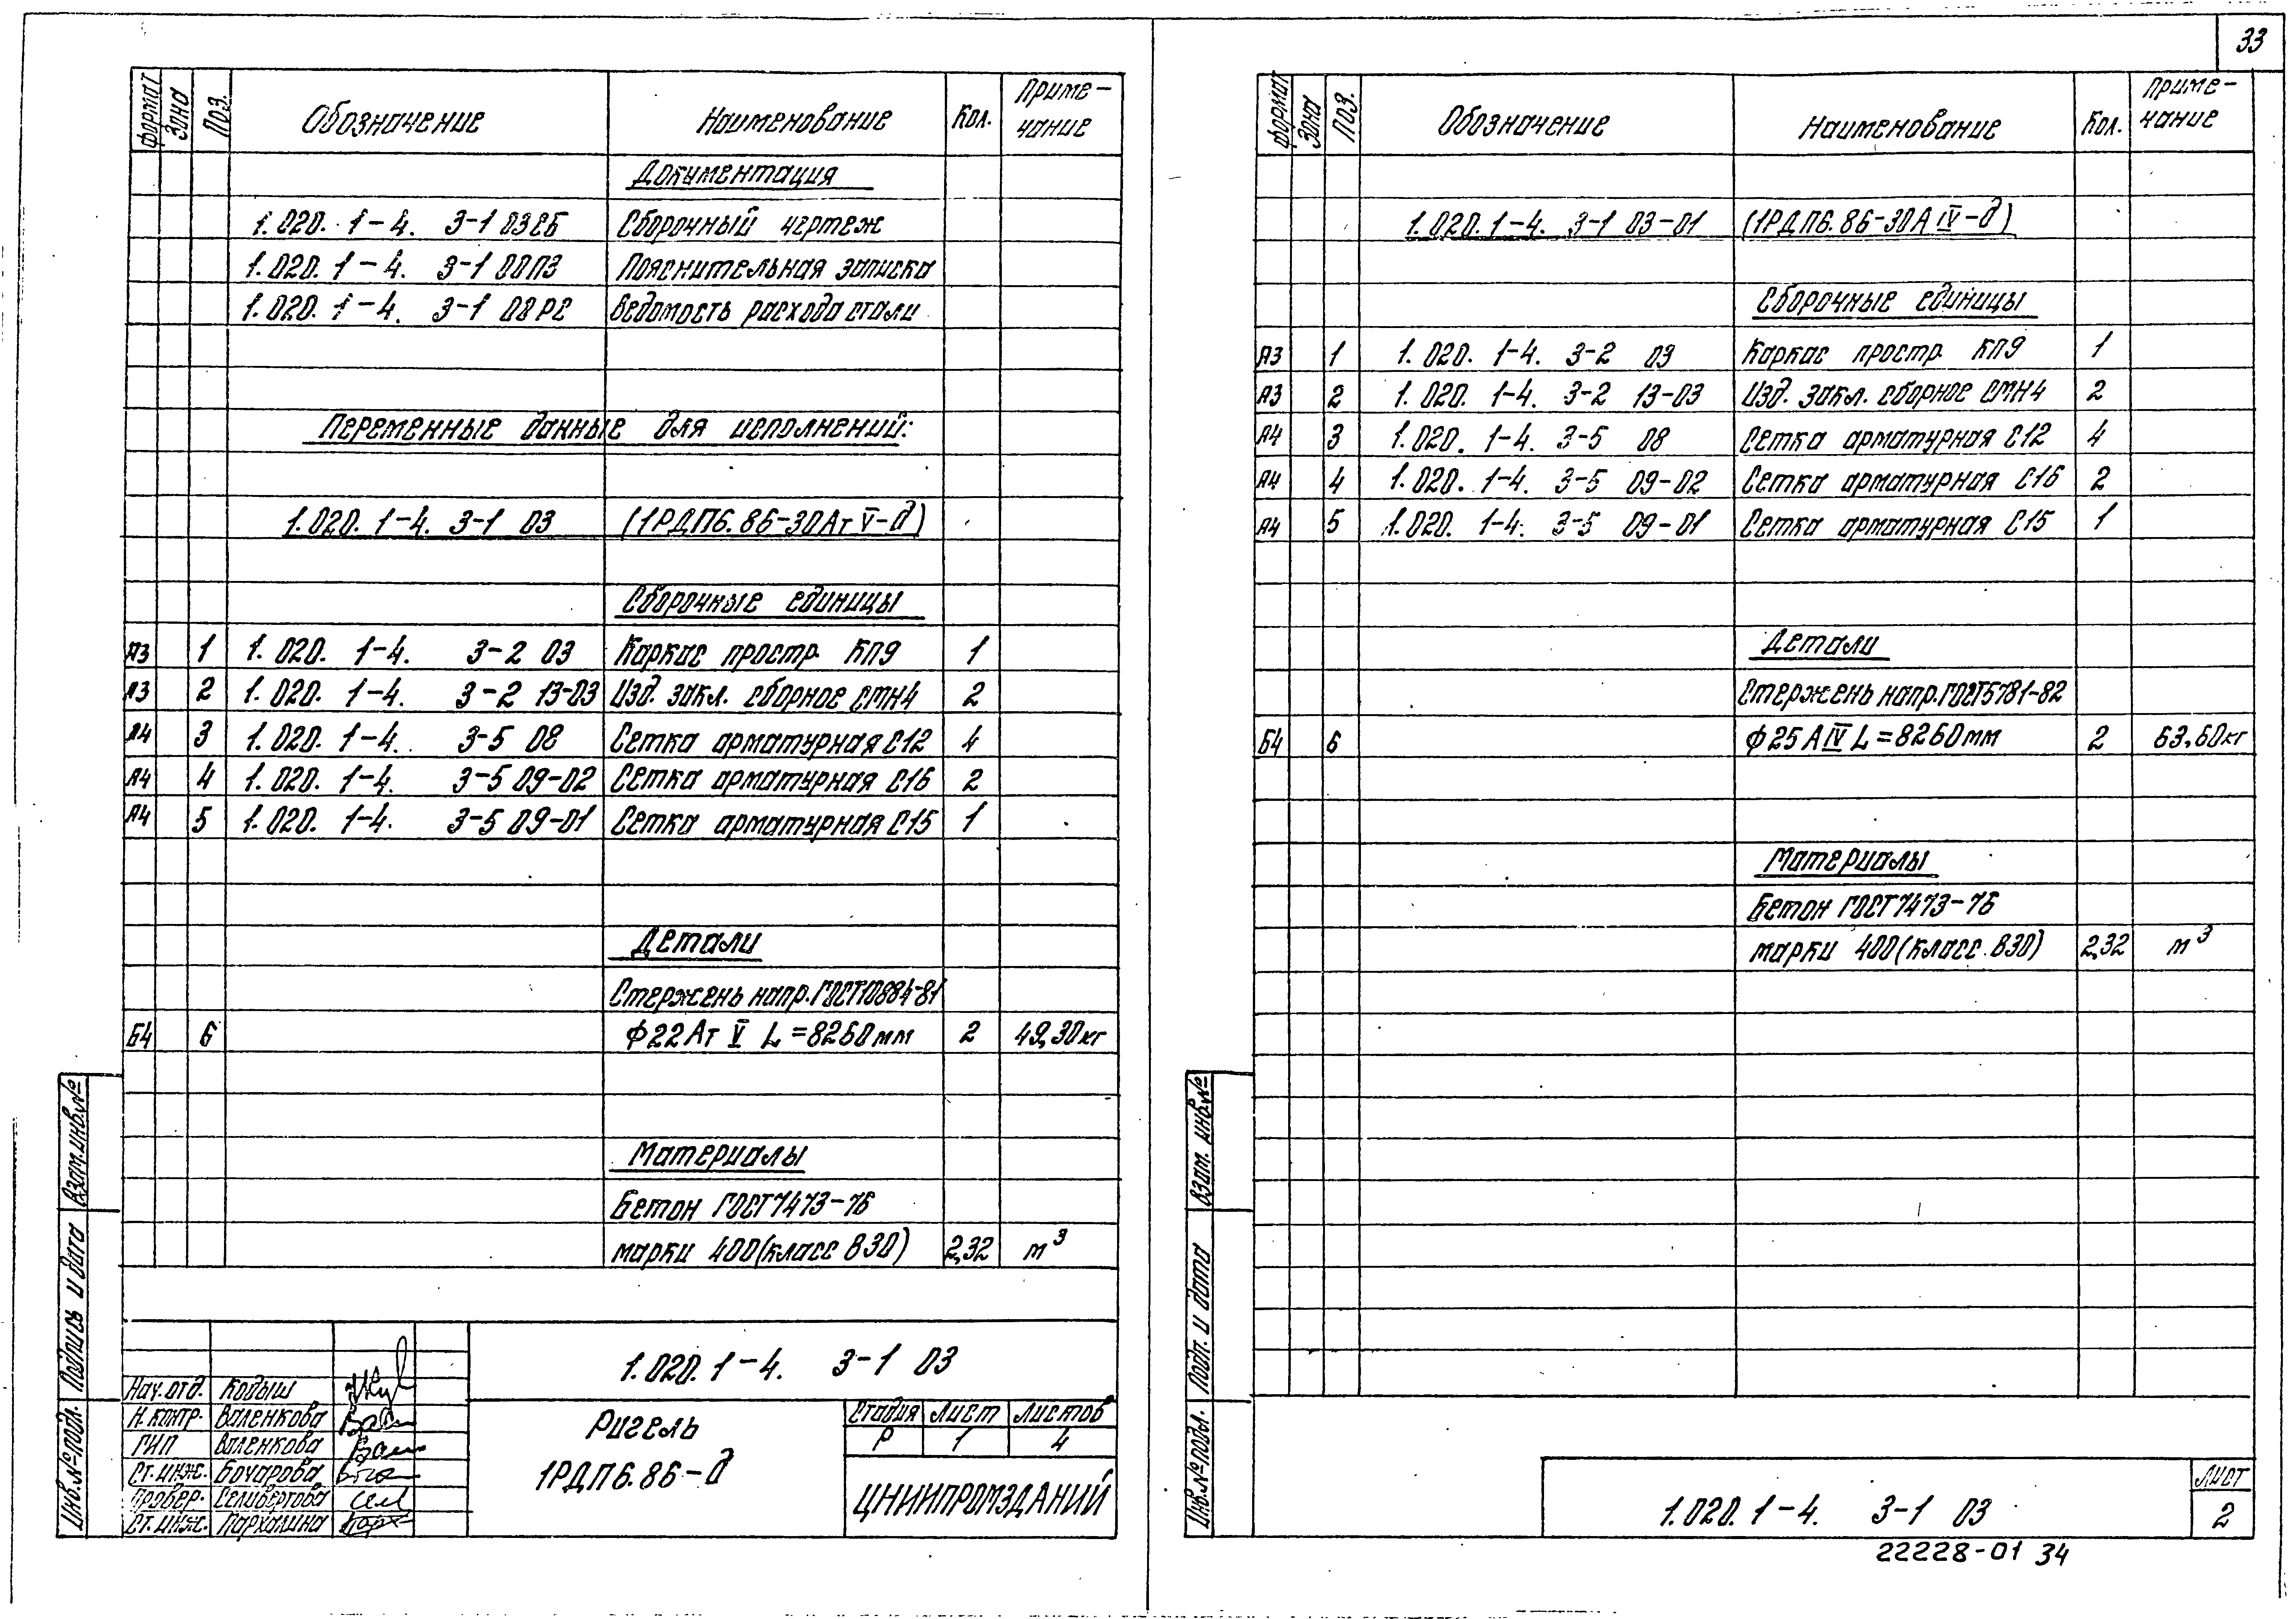 33
Формат Зона Поз. Обозначение Наименование Кол. Приме-
чание
Документация
1.020.1-4. 3-1 03СБ Сборочный чертеж
1.020.1-4. 3-1 00ПЗ Пояснительная записка
1.020.1-4. 3-1 08РС Ведомость расхода стали
Переменные данные для исполнений:
1.020.1-4. 3-1 03 (1РДП6.86-30АтV-д)
Сборочные единицы
А3 1 1.020.1-4. 3-2 03 Каркас простр. КП9 1
А3 2 1.020.1-4. 3-2 13-03 Изд. закл. сборное СМН4 2
А4 3 1.020.1-4. 3-5 08 Сетка арматурная С12 4
А4 4 1.020.1-4. 3-5 09-02 Сетка арматурная С16 2
А4 5 1.020.1-4. 3-5 09-01 Сетка арматурная С15 1
Детали
Стержень напр. ГОСТ10884-81
Б4 6 ф22АтV L=8260мм 2 49,30кг
Материалы
Бетон ГОСТ7473-76
марки 400(класс В30) 2,32 м³
1.020.1-4. 3-1 03
Нач.отд. Кодыш
Н.контр. Валенкова
ГИП Валенкова
Ст.инж. Бочарова
Провер. Селивертова
Ст.инж. Пархалина
Ригель
1РДП6.86-д
Стадия Лист Листов
Р 1 4
ЦНИИПРОМЗДАНИЙ
Инв.№подл. Подпись и дата Взам.инв.№
Формат Зона Поз. Обозначение Наименование Кол. Приме-
чание
1.020.1-4. 3-1 03-01 (1РДП6.86-30АIV-д)
Сборочные единицы
А3 1 1.020.1-4. 3-2 03 Каркас простр. КП9 1
А3 2 1.020.1-4. 3-2 13-03 Изд. закл. сборное СМН4 2
А4 3 1.020.1-4. 3-5 08 Сетка арматурная С12 4
А4 4 1.020.1-4. 3-5 09-02 Сетка арматурная С16 2
А4 5 1.020.1-4. 3-5 09-01 Сетка арматурная С15 1
Детали
Стержень напр.ГОСТ5781-82
Б4 6 ф25АIV L=8260мм 2 63,60кг
Материалы
Бетон ГОСТ7473-76
марки 400(класс В30) 2,32 м³
Инв.№подл. Подп. и дата Взам. инв.№
1.020.1-4. 3-1 03
Лист
2
22228-01 34